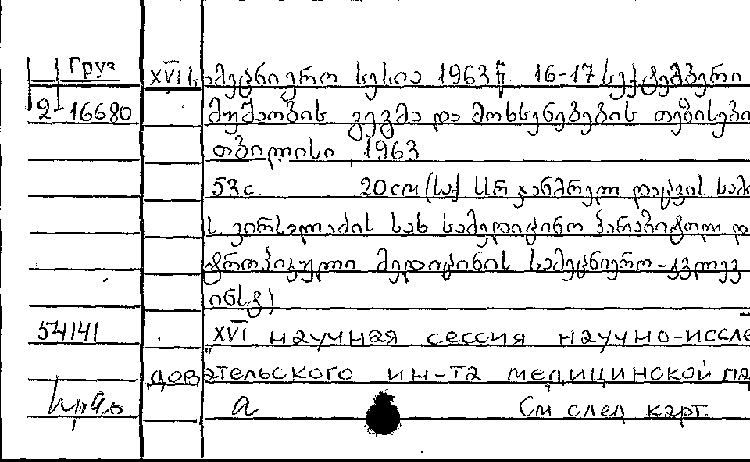 Груз
XVI სამეცნიერო სესია 1963 წ. 16-17 სექტემბერი
2-16680 მუშაობის გეგმა და მოხსენებების თეზისები
თბილისი 1963
53 с. 20 см (საქ სსრ ჯანმრთელ დაცვის სამ
ს. ვირსალაძის სახ სამედიცინო პარაზიტოლ დ
ტროპიკული მედიცინის სამეცნიერო-კვლევ
ინსტ)
54141 "XVI научная сессия научно-иссле
довательского ин-та медицинской па
а См след карт.